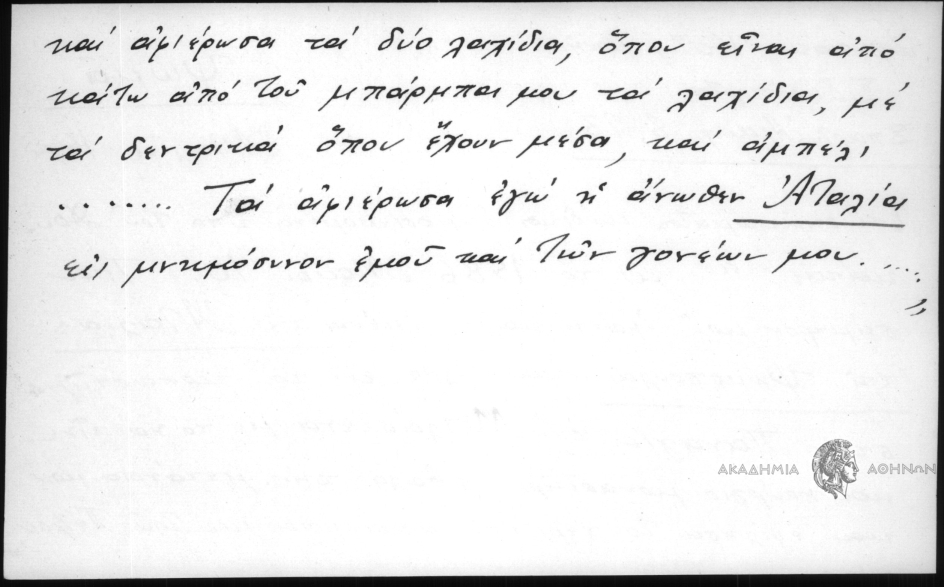 καί ἀφιέρωσα τά δύο λαχίδια, ὅπου εἶναι ἀπό
κάτω ἀπό τοῦ μπάρμπα μου τά λαχίδια, μέ
τά δεντρικά ὅπου ἔχουν μέσα, καί ἀμπέλι
........ Τά ἀφιέρωσα ἐγώ ἡ ἄνωθεν Ἀταλία
εἰς μνημόσυνον ἐμοῦ καί τῶν γονέων μου. .....
”
ΑΚΑΔΗΜΙΑ ΑΘΗΝΩΝ